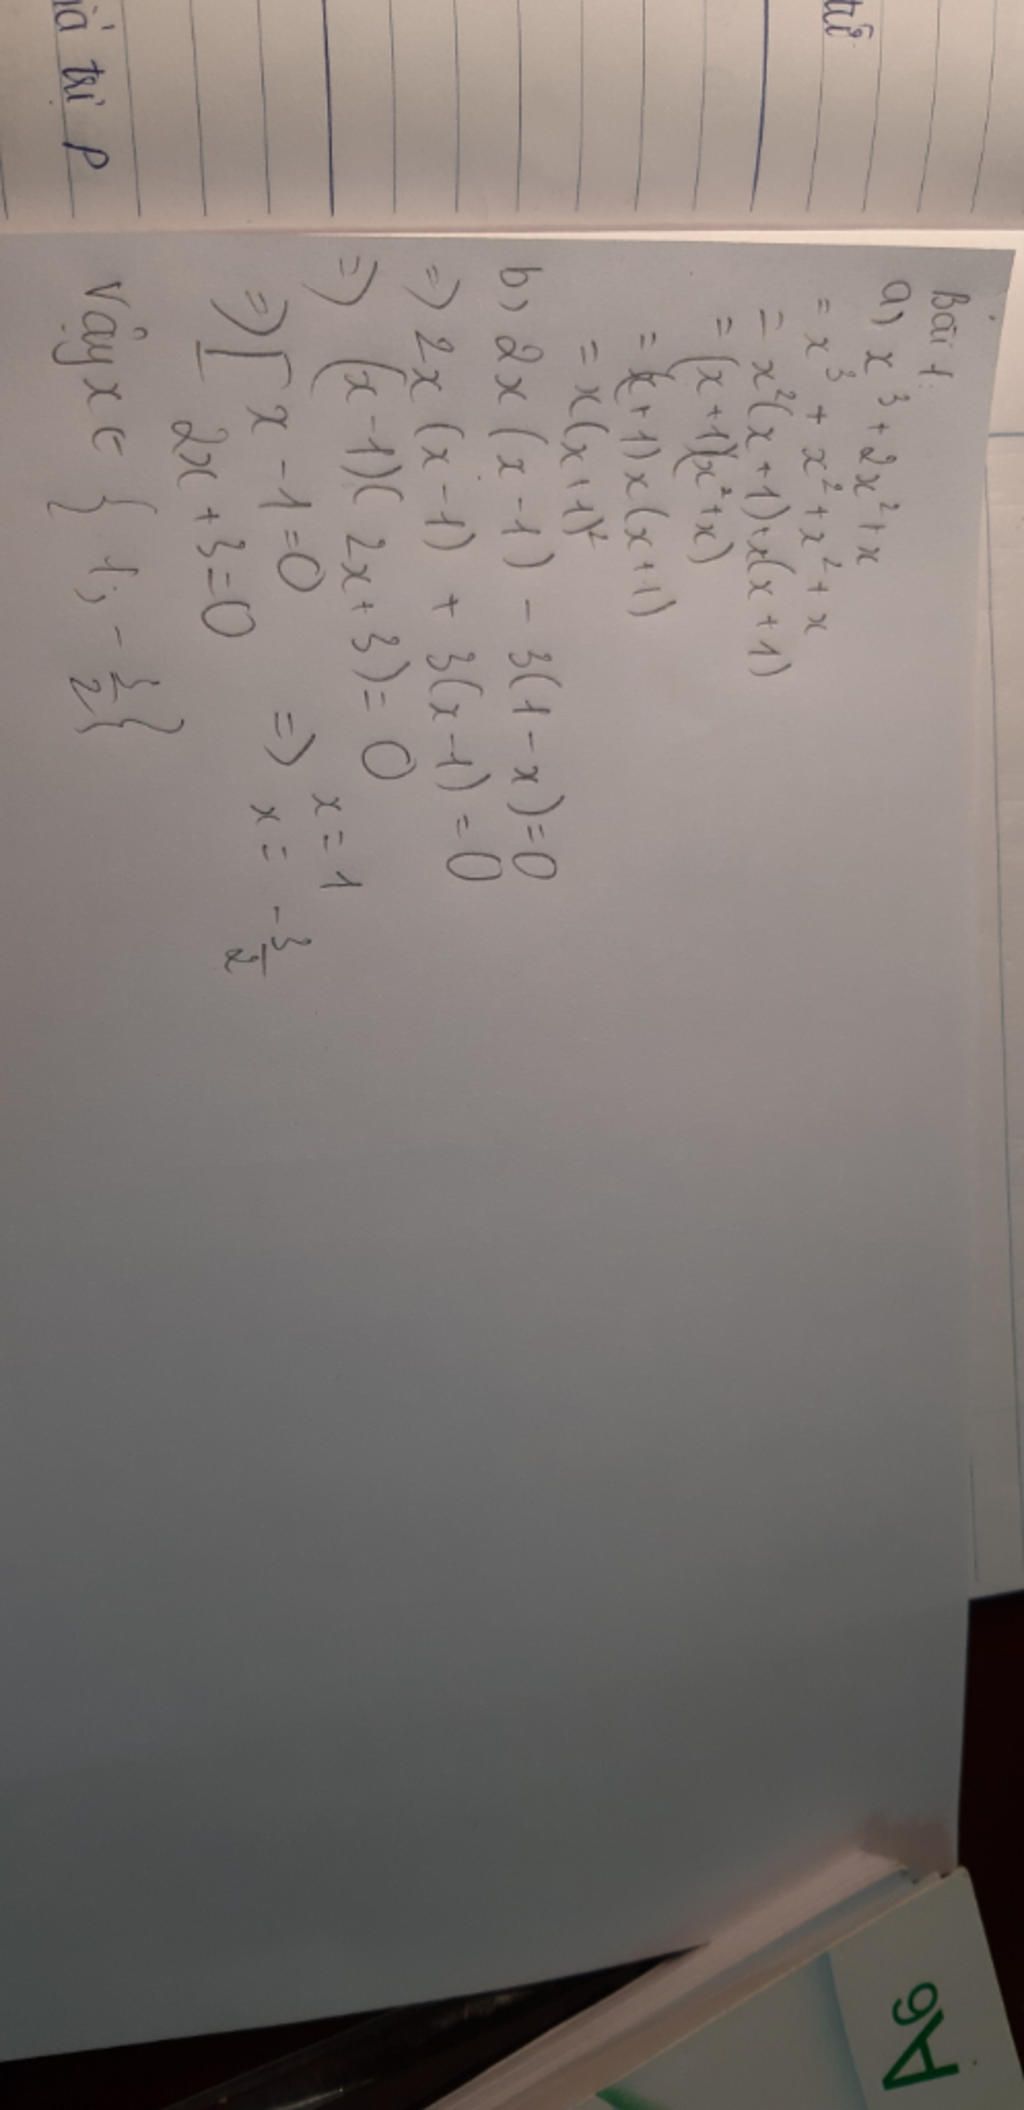 tử
giá trị P
Bài 1:
a, x³ + 2x² + x
= x³ + x² + x² + x
= x²(x + 1) + x(x + 1)
= (x + 1)(x² + x)
= (x + 1) x (x + 1)
= x(x + 1)²
b, 2x (x - 1) - 3(1 - x) = 0
=> 2x (x - 1) + 3(x - 1) = 0
=> (x - 1)(2x + 3) = 0
=> [ x - 1 = 0 => x = 1
2x + 3 = 0 x = -3/2
Vậy x ∈ { 1; -3/2 }
A6